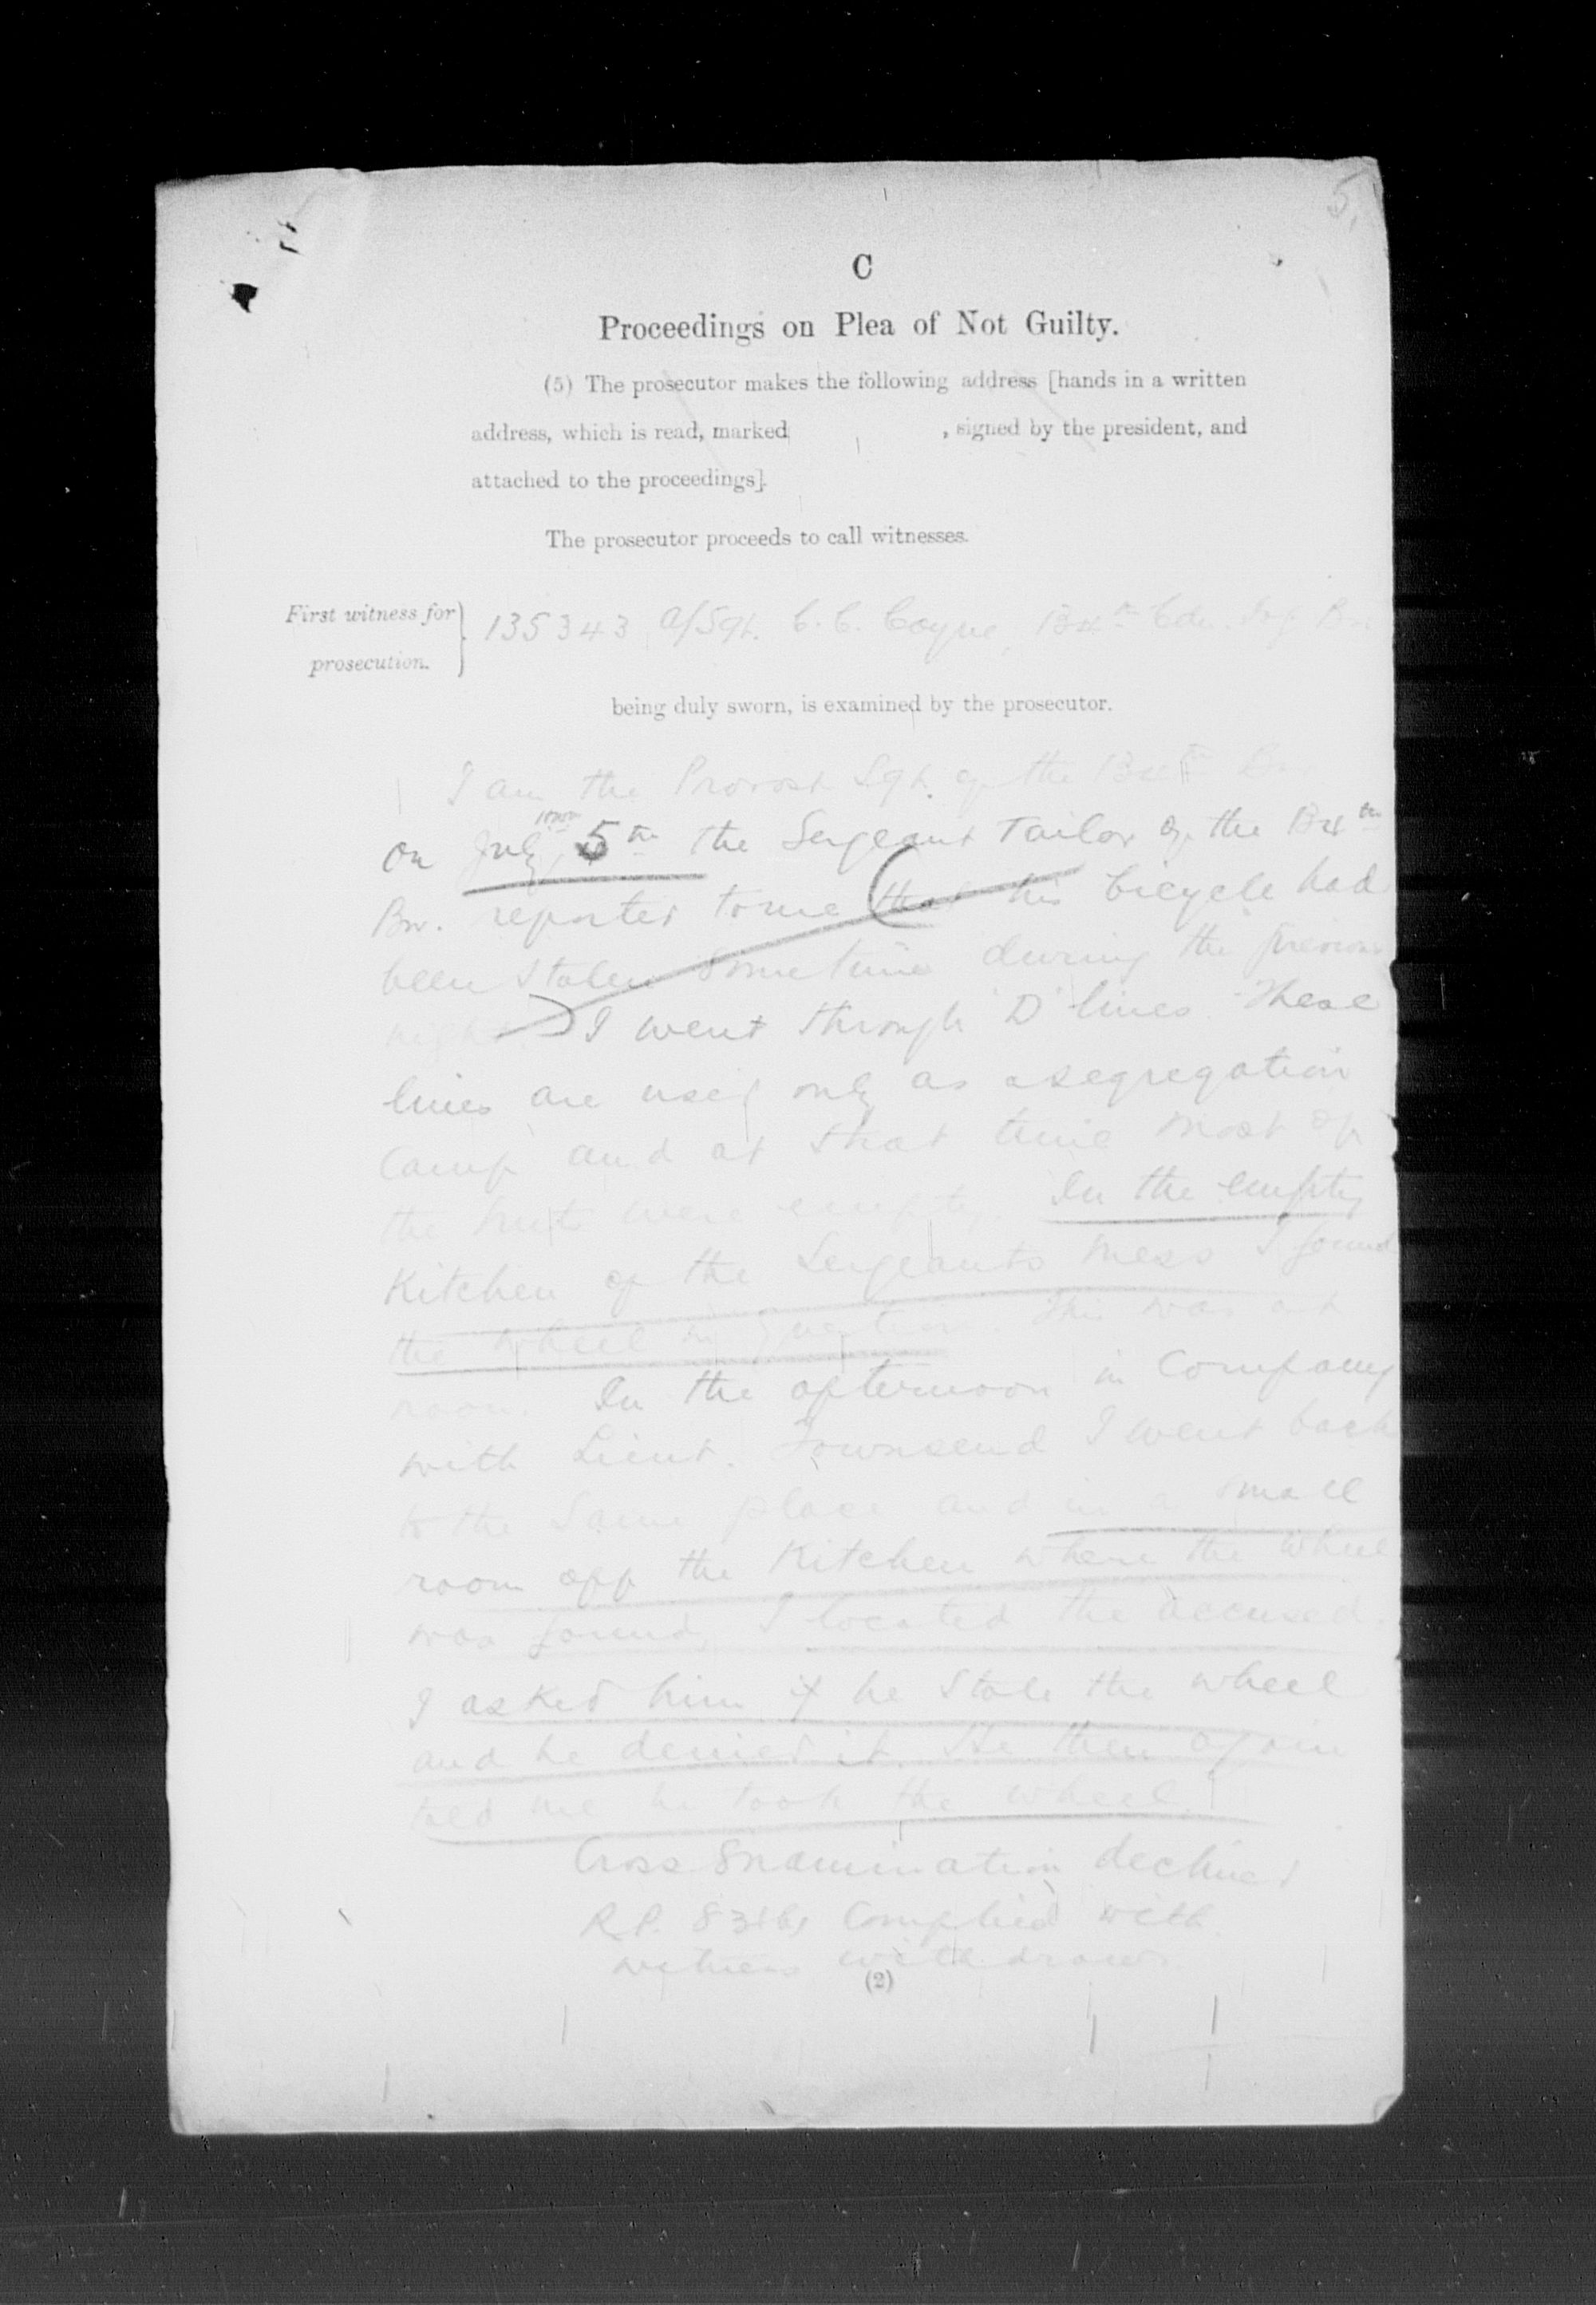 5.
C
Proceedings on Plea of Not Guilty.
(5) The prosecutor makes the following address [hands in a written
address, which is read, marked , signed by the president, and
attached to the proceedings].
The prosecutor proceeds to call witnesses.
First witness for
prosecution.
135343 A/Sgt. C. C. Coyne, 134th Cdn. Inf. Bn.
being duly sworn, is examined by the prosecutor.
I am the Provost Sgt. of the 134th Bn.
On July 5th the Sergeant Tailor of the 134th
Bn. reported to me that his bicycle had
been stolen sometime during the previous
night. I went through "D" lines. These
lines are used only as a segregation
Camp and at that time most of
the huts were empty. In the empty
Kitchen of the Sergeants mess I found
the wheel in question. This was at
noon. In the afternoon in Company
with Lieut. Townsend I went back
to the same place and in a small
room opp the Kitchen where the wheel
was found, I located the accused.
I asked him if he stole the wheel
and he denied it. He then again
told me he took the wheel.
Cross Examination declined
R.P. 83(b) Complied with
witness withdraws.
(2)